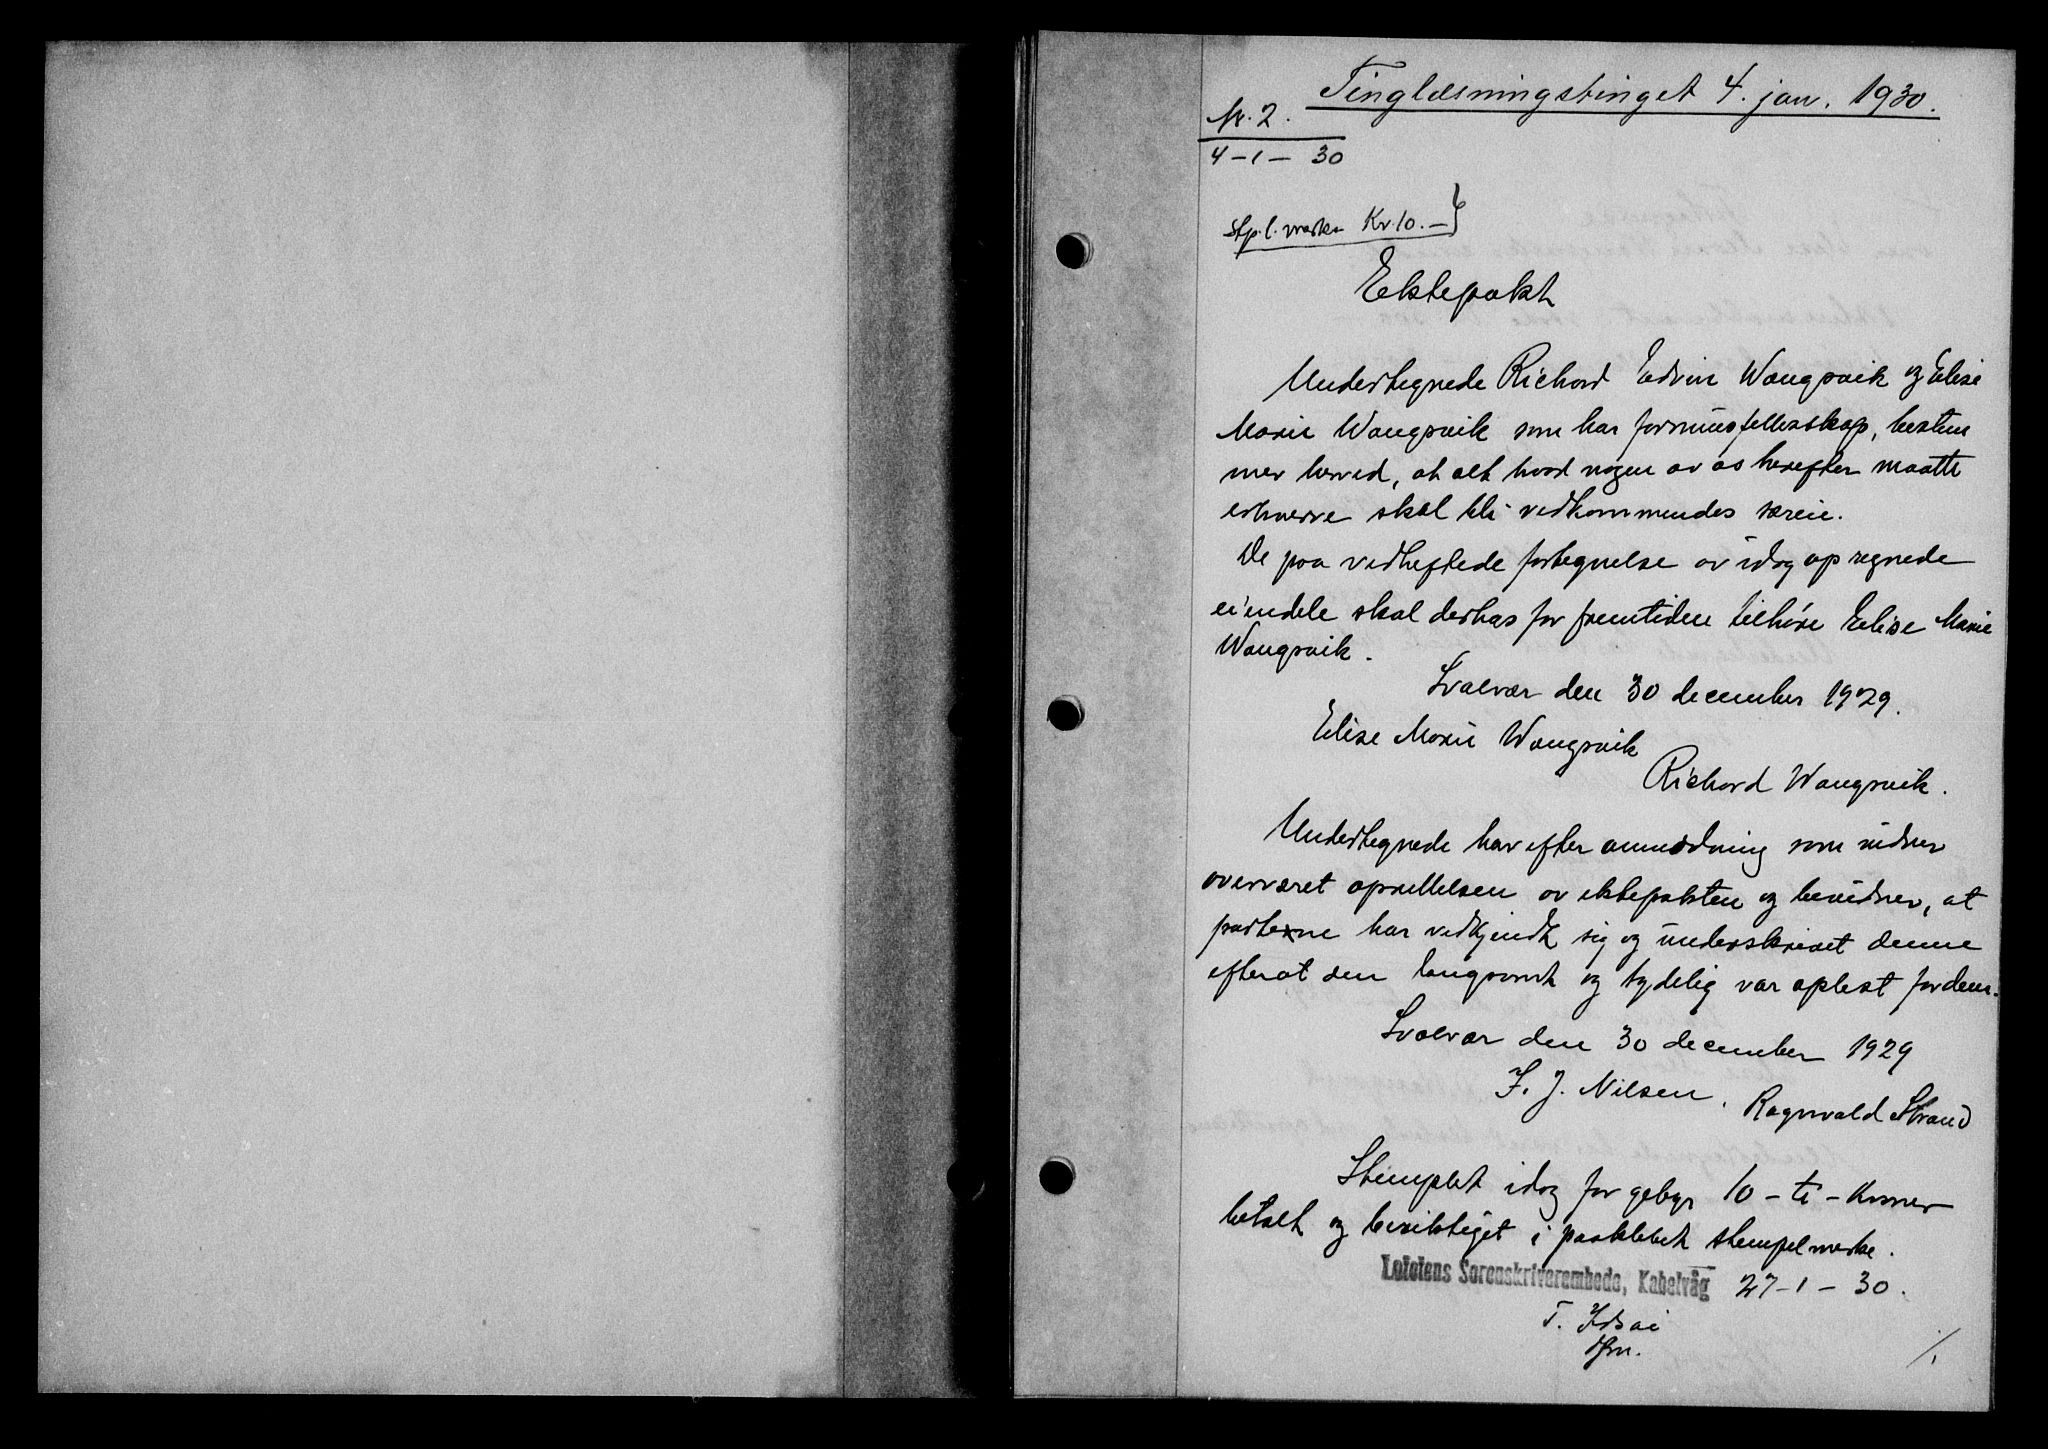 Tinglæsningstinget 4. jan. 1930.
Nr. 2.
4-1-30
Stpl. merke Kr. 10.-
Ektepakt
Undertegnede Richard Edvin Wangsvik og Elise
Marie Wangsvik som har formuesfellesskap, bestem
mer herved, at alt hvad nogen av os herefter maatte
erhverve skal bli vedkommendes særeie.
De paa vedheftede fortegnelse av idag opregnede
eiendele skal derhos for fremtiden tilhøre Elise Marie
Wangsvik.
Svolvær den 30 december 1929.
Elise Marie Wangsvik
Richard Wangsvik.
Undertegnede har efter anmodning som vidner
overværet oprettelsen av ektepakten og bevidner, at
parterne har vedkjendt sig og underskrevet denne
efterat den langsomt og tydelig var oplest for dem.
Svolvær den 30 december 1929
F. J. Nilsen. Ragnvald Strand
Stemplet idag for gebyr 10 - ti - kroner
betalt og beriktiget i paaklebet stempelmerke.
Lofotens Sorenskriverembede, Kabelvåg 27-1-30.
T. Idsøe
1/1